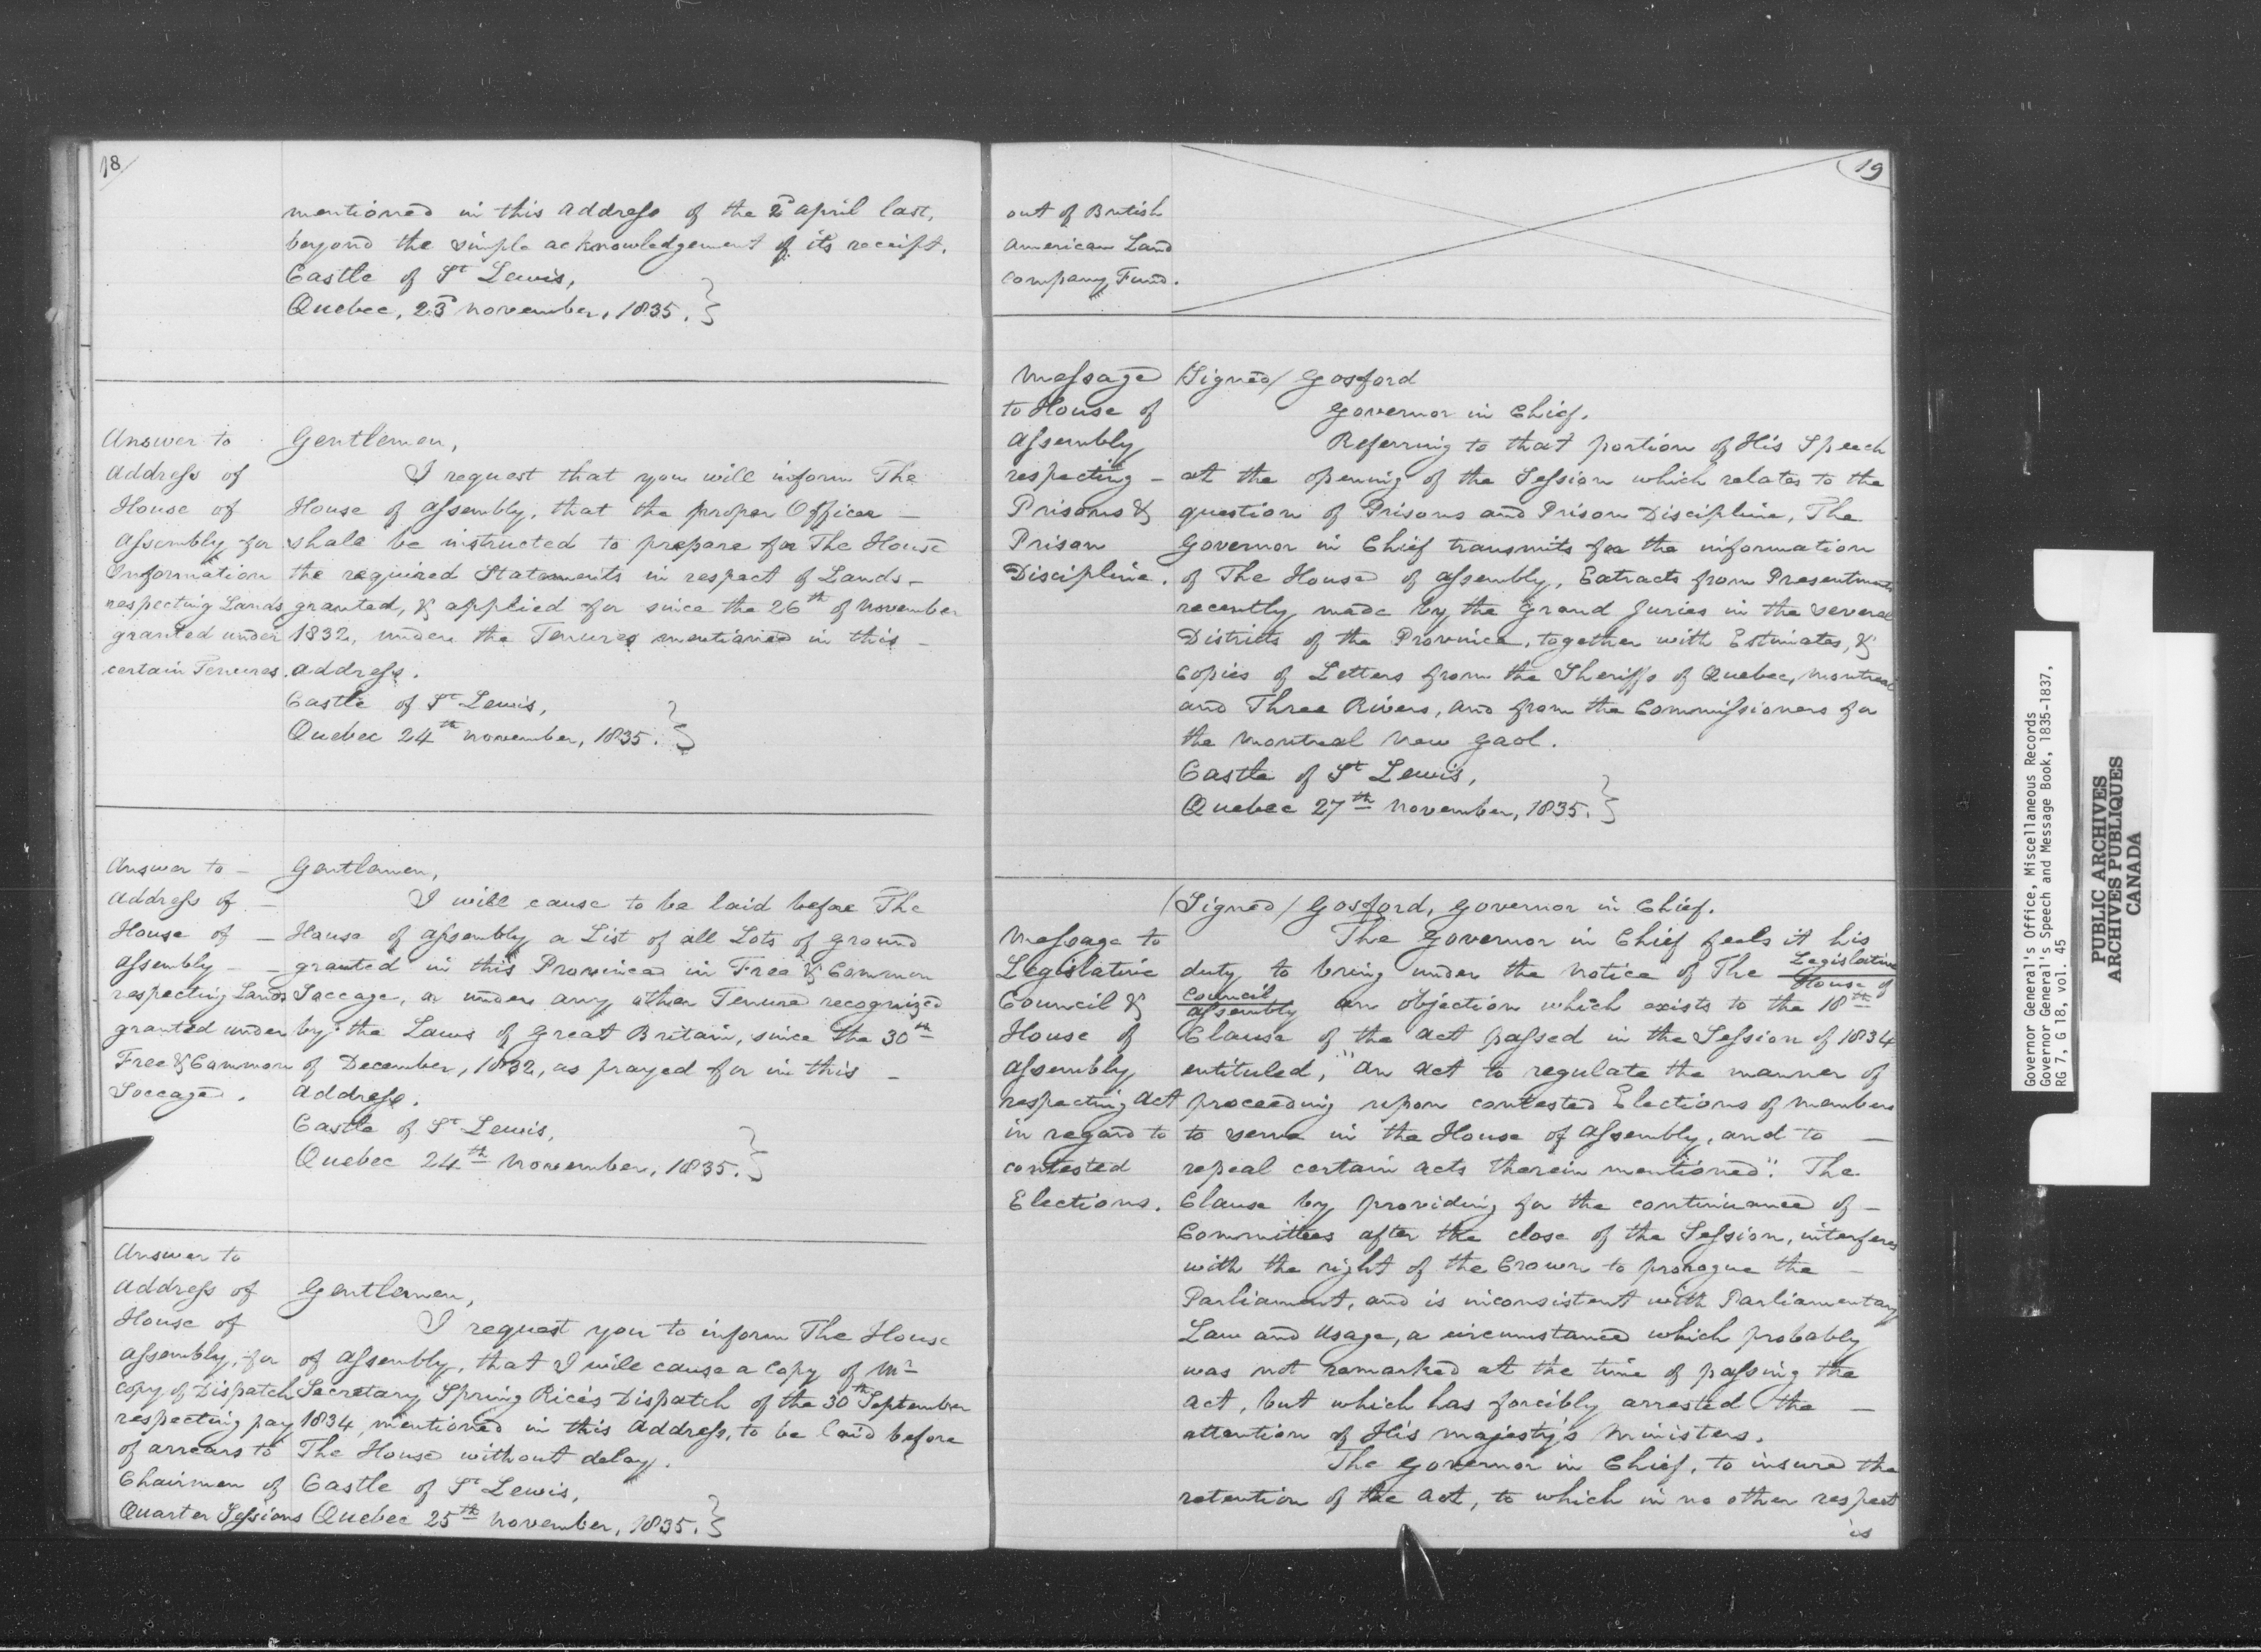 18
mentioned in this Address of the 2d April last,
beyond the simple acknowledgement of its receipt.
Castle of St Lewis,
Quebec, 23d November, 1835.
Answer to
Address of
House of
Assembly for
Information
respecting Lands
granted under
certain Tenures.
Gentlemen,
I request that you will inform The
House of Assembly, that the proper Officer –
shall be instructed to prepare for The House
the required Statements in respect of Lands –
granted, & applied for since the 26th of November
1832, under the Tenures mentioned in this –
Address.
Castle of St Lewis,
Quebec 24th November, 1835.
Answer to –
Address of –
House of –
Assembly – –
respecting Lands
granted under
Free & Common
Soccage.
Gentlemen,
I will cause to be laid before The
House of Assembly a List of all Lots of ground
granted in this Province in Free & Common
Soccage, or under any other Tenure recognized
by the Laws of Great Britain, since the 30th
of December, 1832, as prayed for in this –
Address.
Castle of St Lewis,
Quebec 24th November, 1835.
Answer to
Address of
House of
Assembly, for
Copy of Dispatch
respecting pay
of arrears to
Chairmen of
Quarter Sessions
Gentlemen,
I request you to inform The House
of Assembly, that I will cause a Copy of Mr
Secretary Spring Rice's Dispatch of the 30th September
1834, mentioned in this Address, to be laid before
The House without delay.
Castle of St Lewis,
Quebec 25th November, 1835.
19
out of British
American Land
Company Fund.
Message
to House of
Assembly
respecting –
Prisons &
Prison
Discipline.
(Signed) Gosford
Governor in Chief.
Referring to that portion of His Speech
at the opening of the Session which relates to the
question of Prisons and Prison Discipline, The
Governor in Chief transmits for the information
of The House of Assembly, Extracts from Presentments
recently made by the Grand Juries in the several
Districts of the Province, together with Estimates, &
Copies of Letters from the Sheriffs of Quebec, Montreal
and Three Rivers, and from the Commissioners for
the Montreal New Gaol.
Castle of St Lewis,
Quebec 27th November, 1835.
Message to
Legislative
Council &
House of
Assembly
respecting Act
in regard to
contested
Elections.
(Signed) Gosford, Governor in Chief.
The Governor in Chief feels it his
duty to bring under the notice of The Legislative
House of
Council
Assembly an objection which exists to the 18th
Clause of the Act passed in the Session of 1834
entituled, "An Act to regulate the manner of
proceeding upon contested Elections of Members
to serve in the House of Assembly, and to –
repeal certain Acts therein mentioned". The
Clause by providing for the continuance of –
Committees after the close of the Session, interferes
with the right of the Crown to prorogue the –
Parliament, and is inconsistent with Parliamentary
Law and Usage, a circumstance which probably
was not remarked at the time of passing the
Act, but which has forcibly arrested the –
attention of His Majesty's Ministers.
The Governor in Chief, to insure the
retention of the Act, to which in no other respect
is
Governor General's Office, Miscellaneous Records
Governor General's Speech and Message Book, 1835-1837,
RG 7, G 18, vol. 45
PUBLIC ARCHIVES
ARCHIVES PUBLIQUES
CANADA